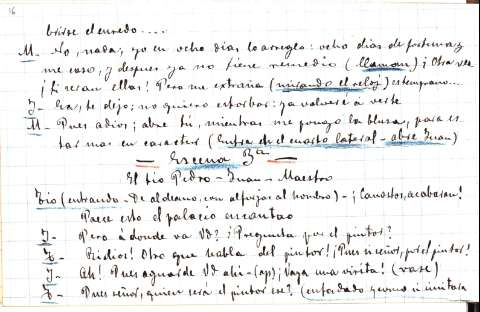 16
brirse el enredo....
M. - No, nada; yo en ocho dias lo arreglo: ocho dias de fortuna, y
me caso, y despues ya no tiene remedio (llaman) ¡Otra vez
¡Si seran ellas! Pero me extraña (mirando el reloj) es temprano...
J - Ea, te dejo; no quiero estorbar: ya volveré a verte
M - Pues adios; abre tú, mientras me pongo la blusa, para es
tar mas en caracter (Entra en el cuarto lateral - abre Juan)
— Escena 3ª —
El tio Pedro - Juan - Maestro
Tio (entrando - De aldeano, con alforjas al hombro) - ¡Canastos, acabaran!
Parece esto el palacio encantao
J - Pero á donde va Vd? ¡Pregunta por el pintor?
T - Ridios! Otro que habla del pintor! ¡Pues si señor, por el pintor!
J - Ah! Pues aguarde Vd ahi - (ap) ¡Vaya una visita! (vase)
T - Pues señor, quien será el pintor ese? (enfadado y como si imitara